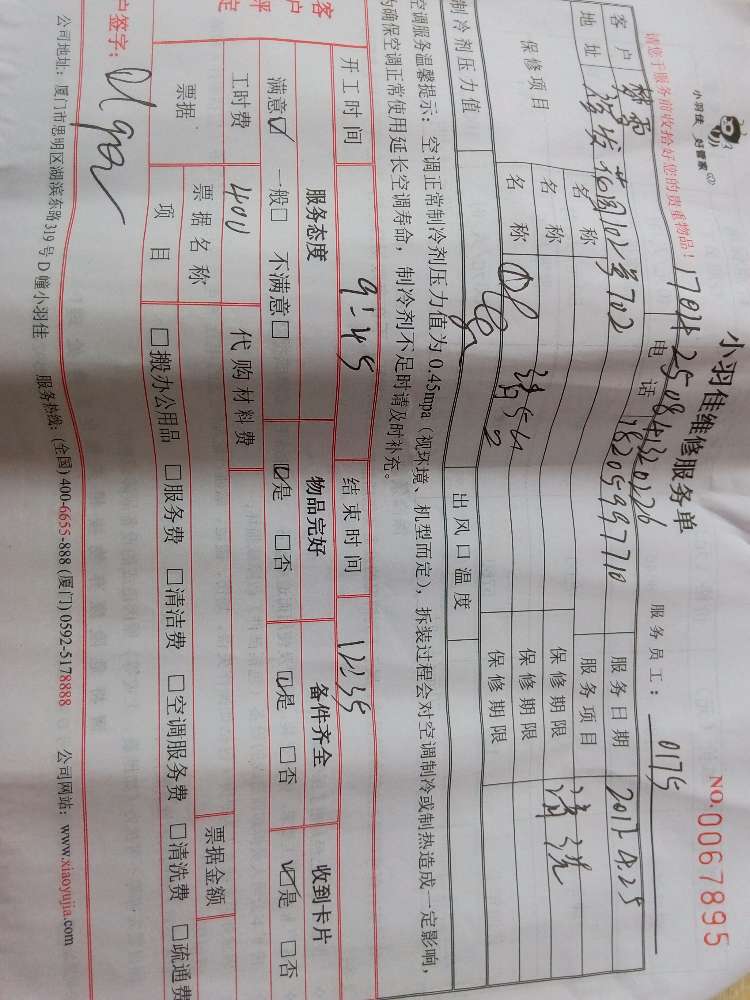 小羽佳 好管家
小羽佳维修服务单
NO.0067895
请您于服务前收拾好您的贵重物品!
服务员工: 0175
客户
电话 18205997710
服务日期 2017.4.25
地址 花园102号702
服务项目 清洗
保修项目
名称
保修期限
名称
保修期限
名称
保修期限
制冷剂压力值
出风口温度
空调服务温馨提示: 空调正常制冷剂压力值为0.45mpa (视环境、机型而定), 拆装过程会对空调制冷或制热造成一定影响,
为确保空调正常使用延长空调寿命, 制冷剂不足时请及时补充。
开工时间 9:45 结束时间 12:35
客户评定
服务态度 物品完好 备件齐全 收到卡片
满意☑ 一般□ 不满意□ ☑是 □否 ☑是 □否 ☑是 □否
工时费 400 代购材料费
票据 票据名称 票据金额
项目 □搬办公用品 □服务费 □清洁费 □空调服务费 □清洗费 □疏通费
户签字:
公司地址: 厦门市思明区湖滨东路319号D幢小羽佳 服务热线: (全国) 400-6655-888 (厦门) 0592-5178888 公司网站: www.xiaoyujia.com